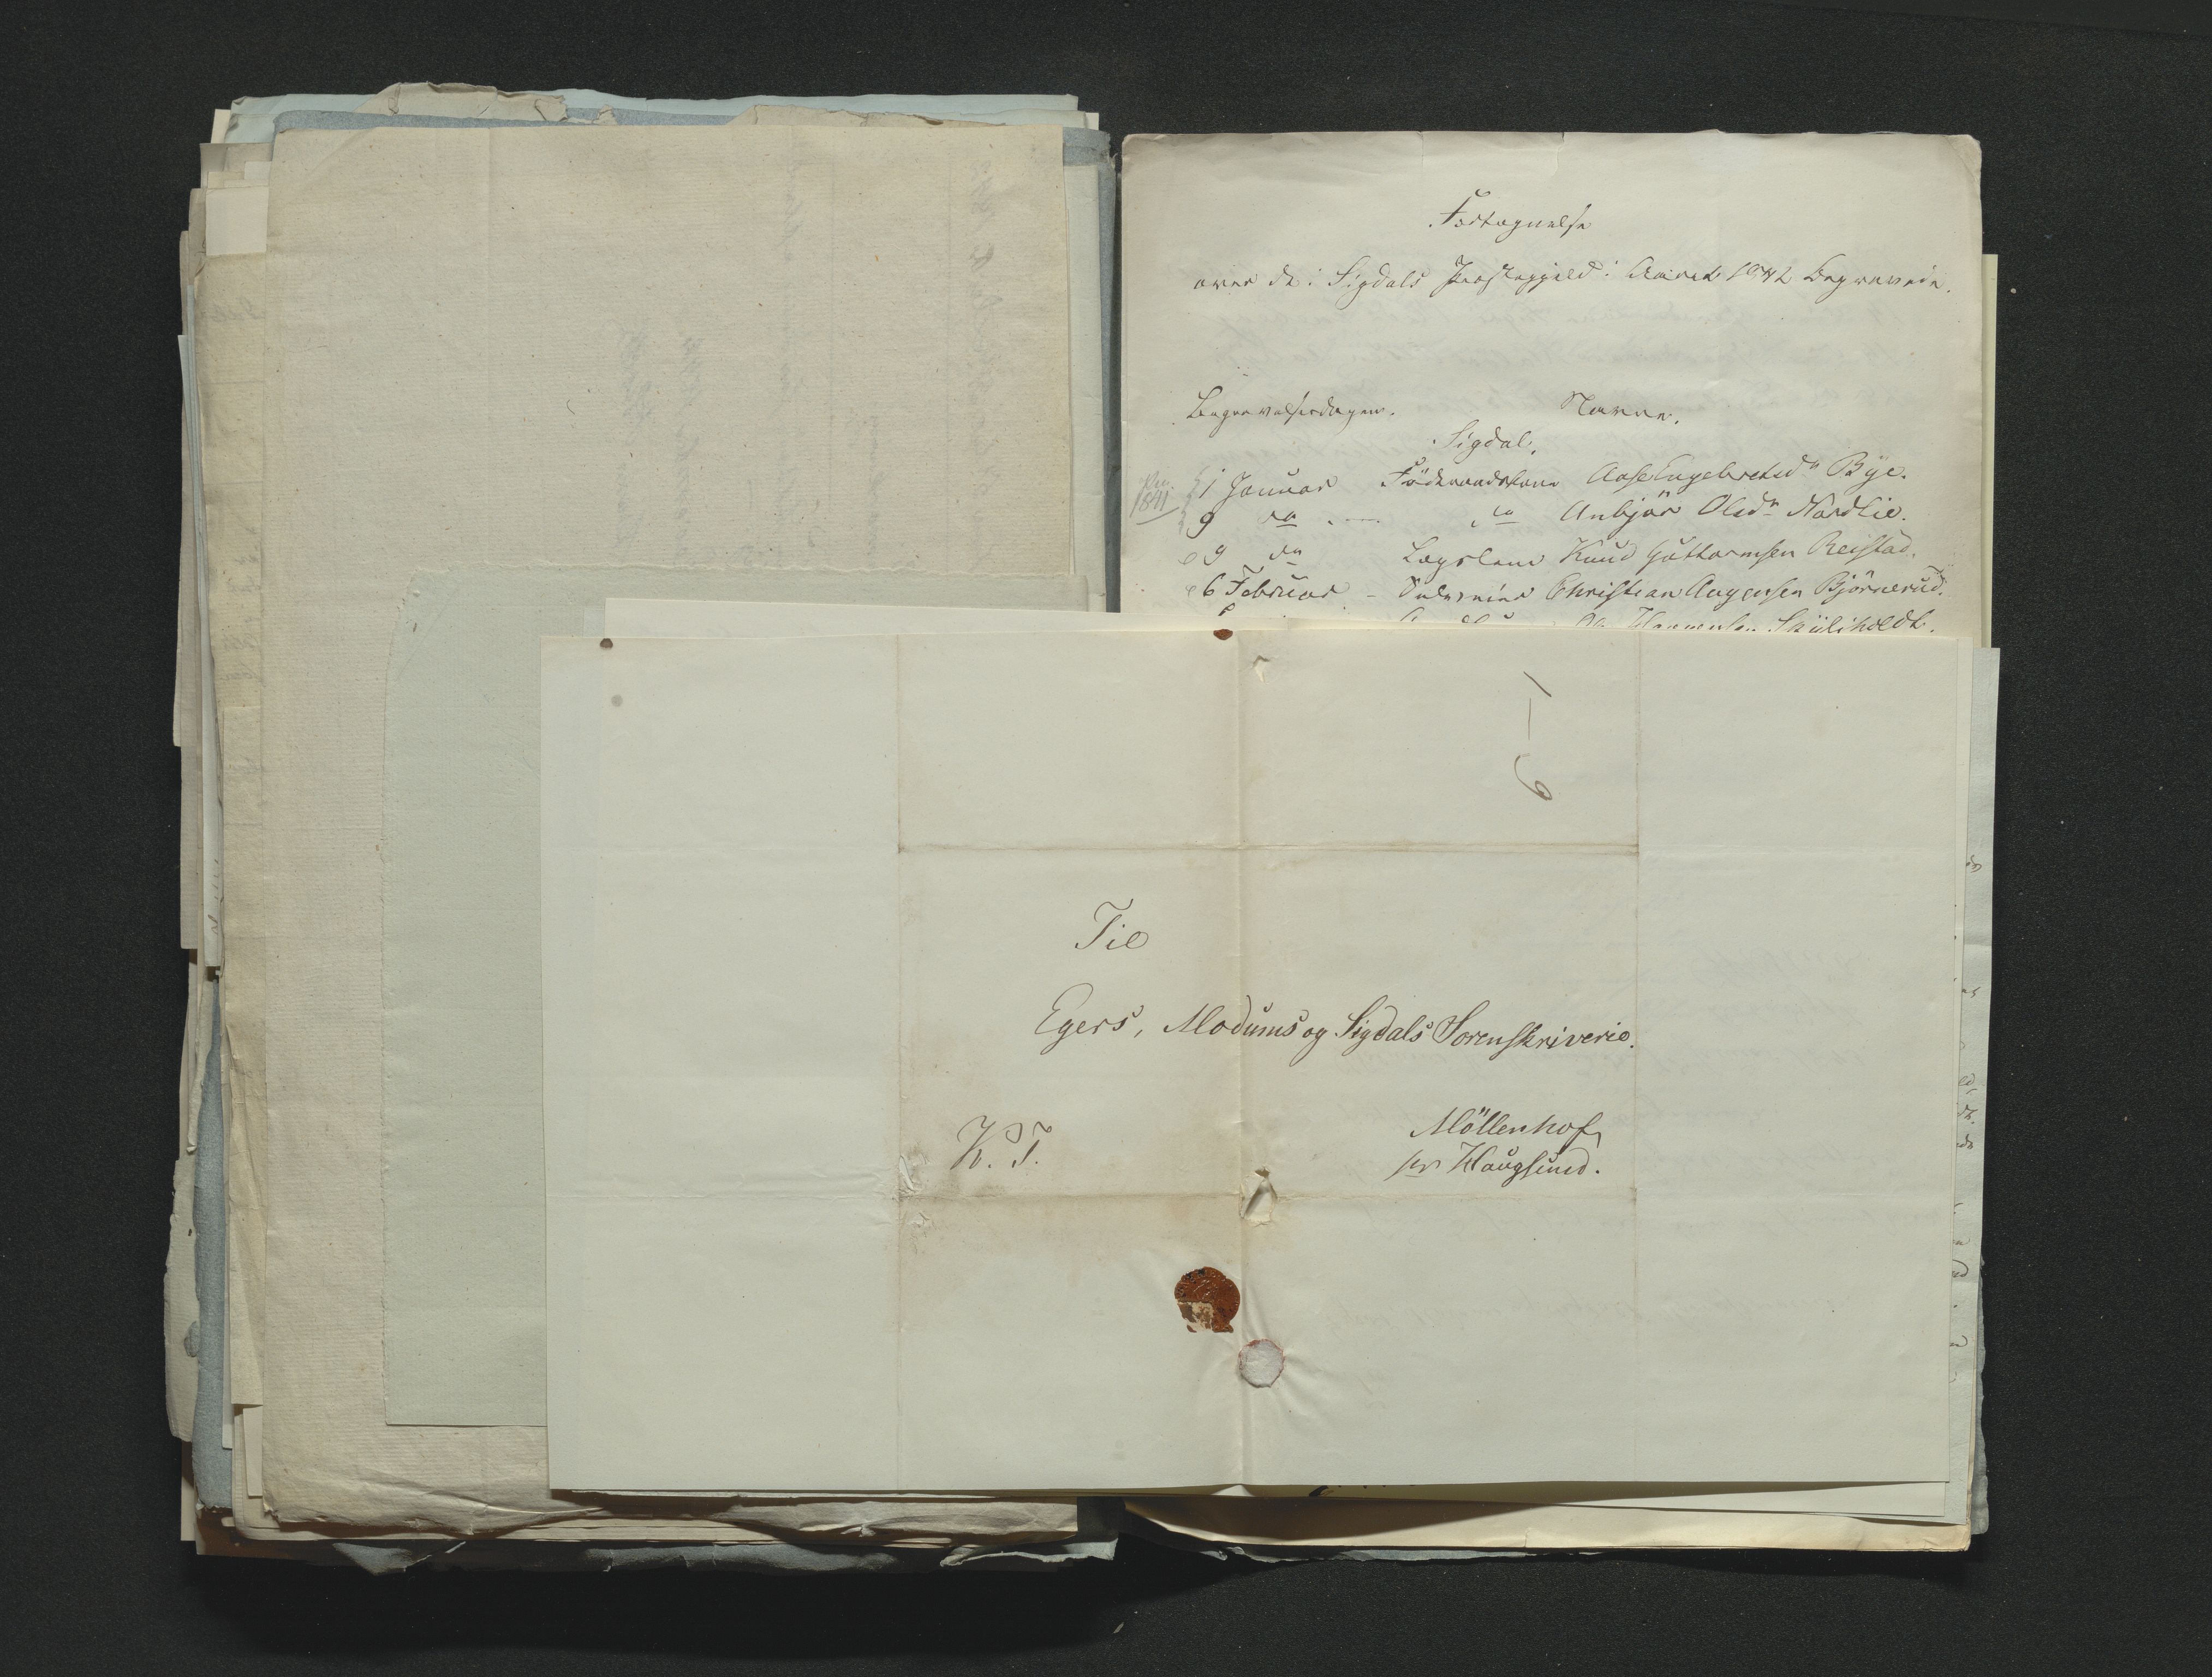 Fortegnelse
over de i Sigdals Præstegjeld i Aaret 1842 Begravede.
Begravelsesdagen. Navne.
Sigdal.
1841
1 Januar Föderaadskone Aase Engebretsd. Bye.
9 do — do Anbjör Olsd. Nordlie.
9 do Lægslem Knud Guttormsen Reistad.
6 Februar - Christian Aagensen Björnerud.
Skuliholdt.
1 — 6
Til
Egers, Modums og Sigdals Sorenskriverie.
K. T.
Möllenhof
pr Haugsund.